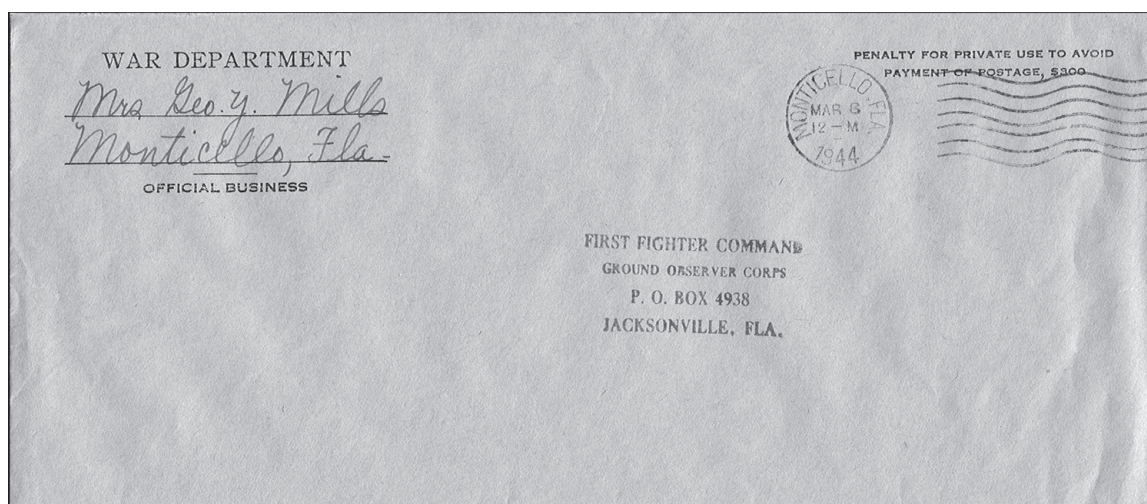 WAR DEPARTMENT
Mrs Geo. Y. Mills
Monticello, Fla-
OFFICIAL BUSINESS
PENALTY FOR PRIVATE USE TO AVOID
PAYMENT OF POSTAGE, $300
MONTICELLO, FLA.
MAR 6
12-M
1944
FIRST FIGHTER COMMAND
GROUND OBSERVER CORPS
P. O. BOX 4938
JACKSONVILLE, FLA.